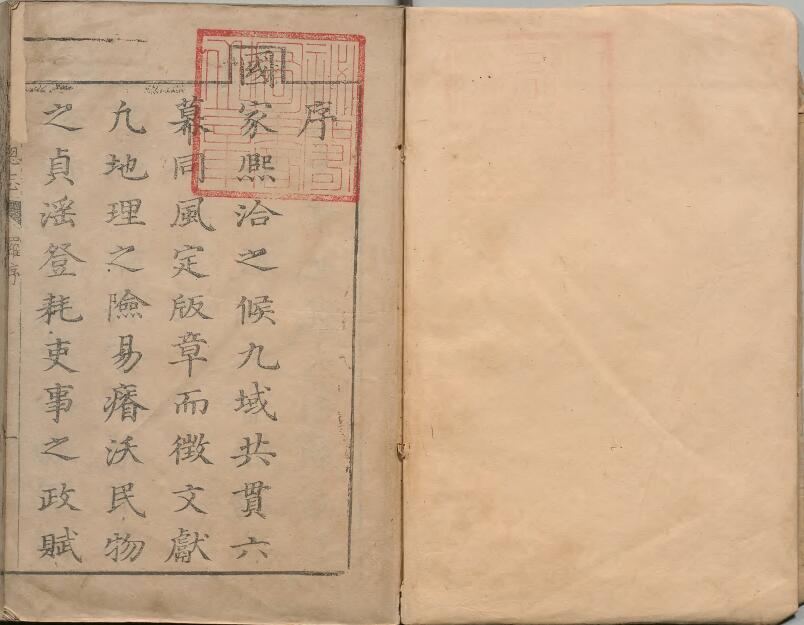 序
國家熈洽之候九域共貫六
幕同風定版章而徵文獻
凢地理之險易瘠沃民物
之貞滛登耗吏事之政賦
羅序